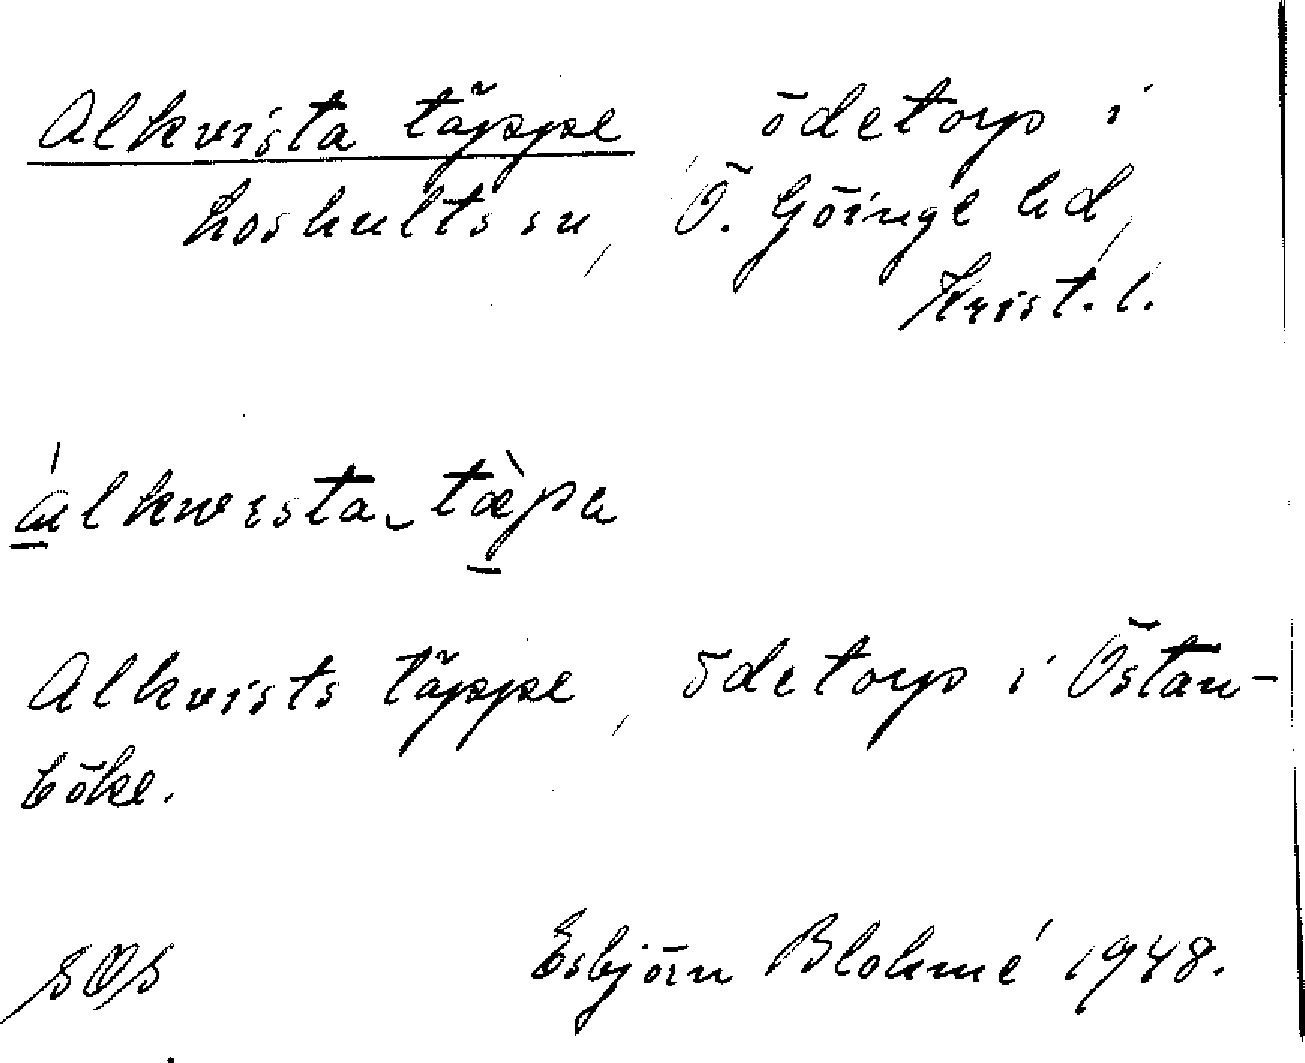 Alkvista täppe ödetorp i
Loshults sn, Ö. Göinge hd,
Krist. l.
álkvista tæ̀pa
Alkvists täppe, ödetorp i Östan-
böke.
SOS Esbjörn Blohmé 1948.